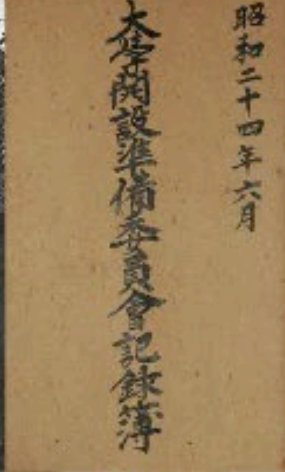 昭和二十四年六月
大学開設準備委員會記錄簿